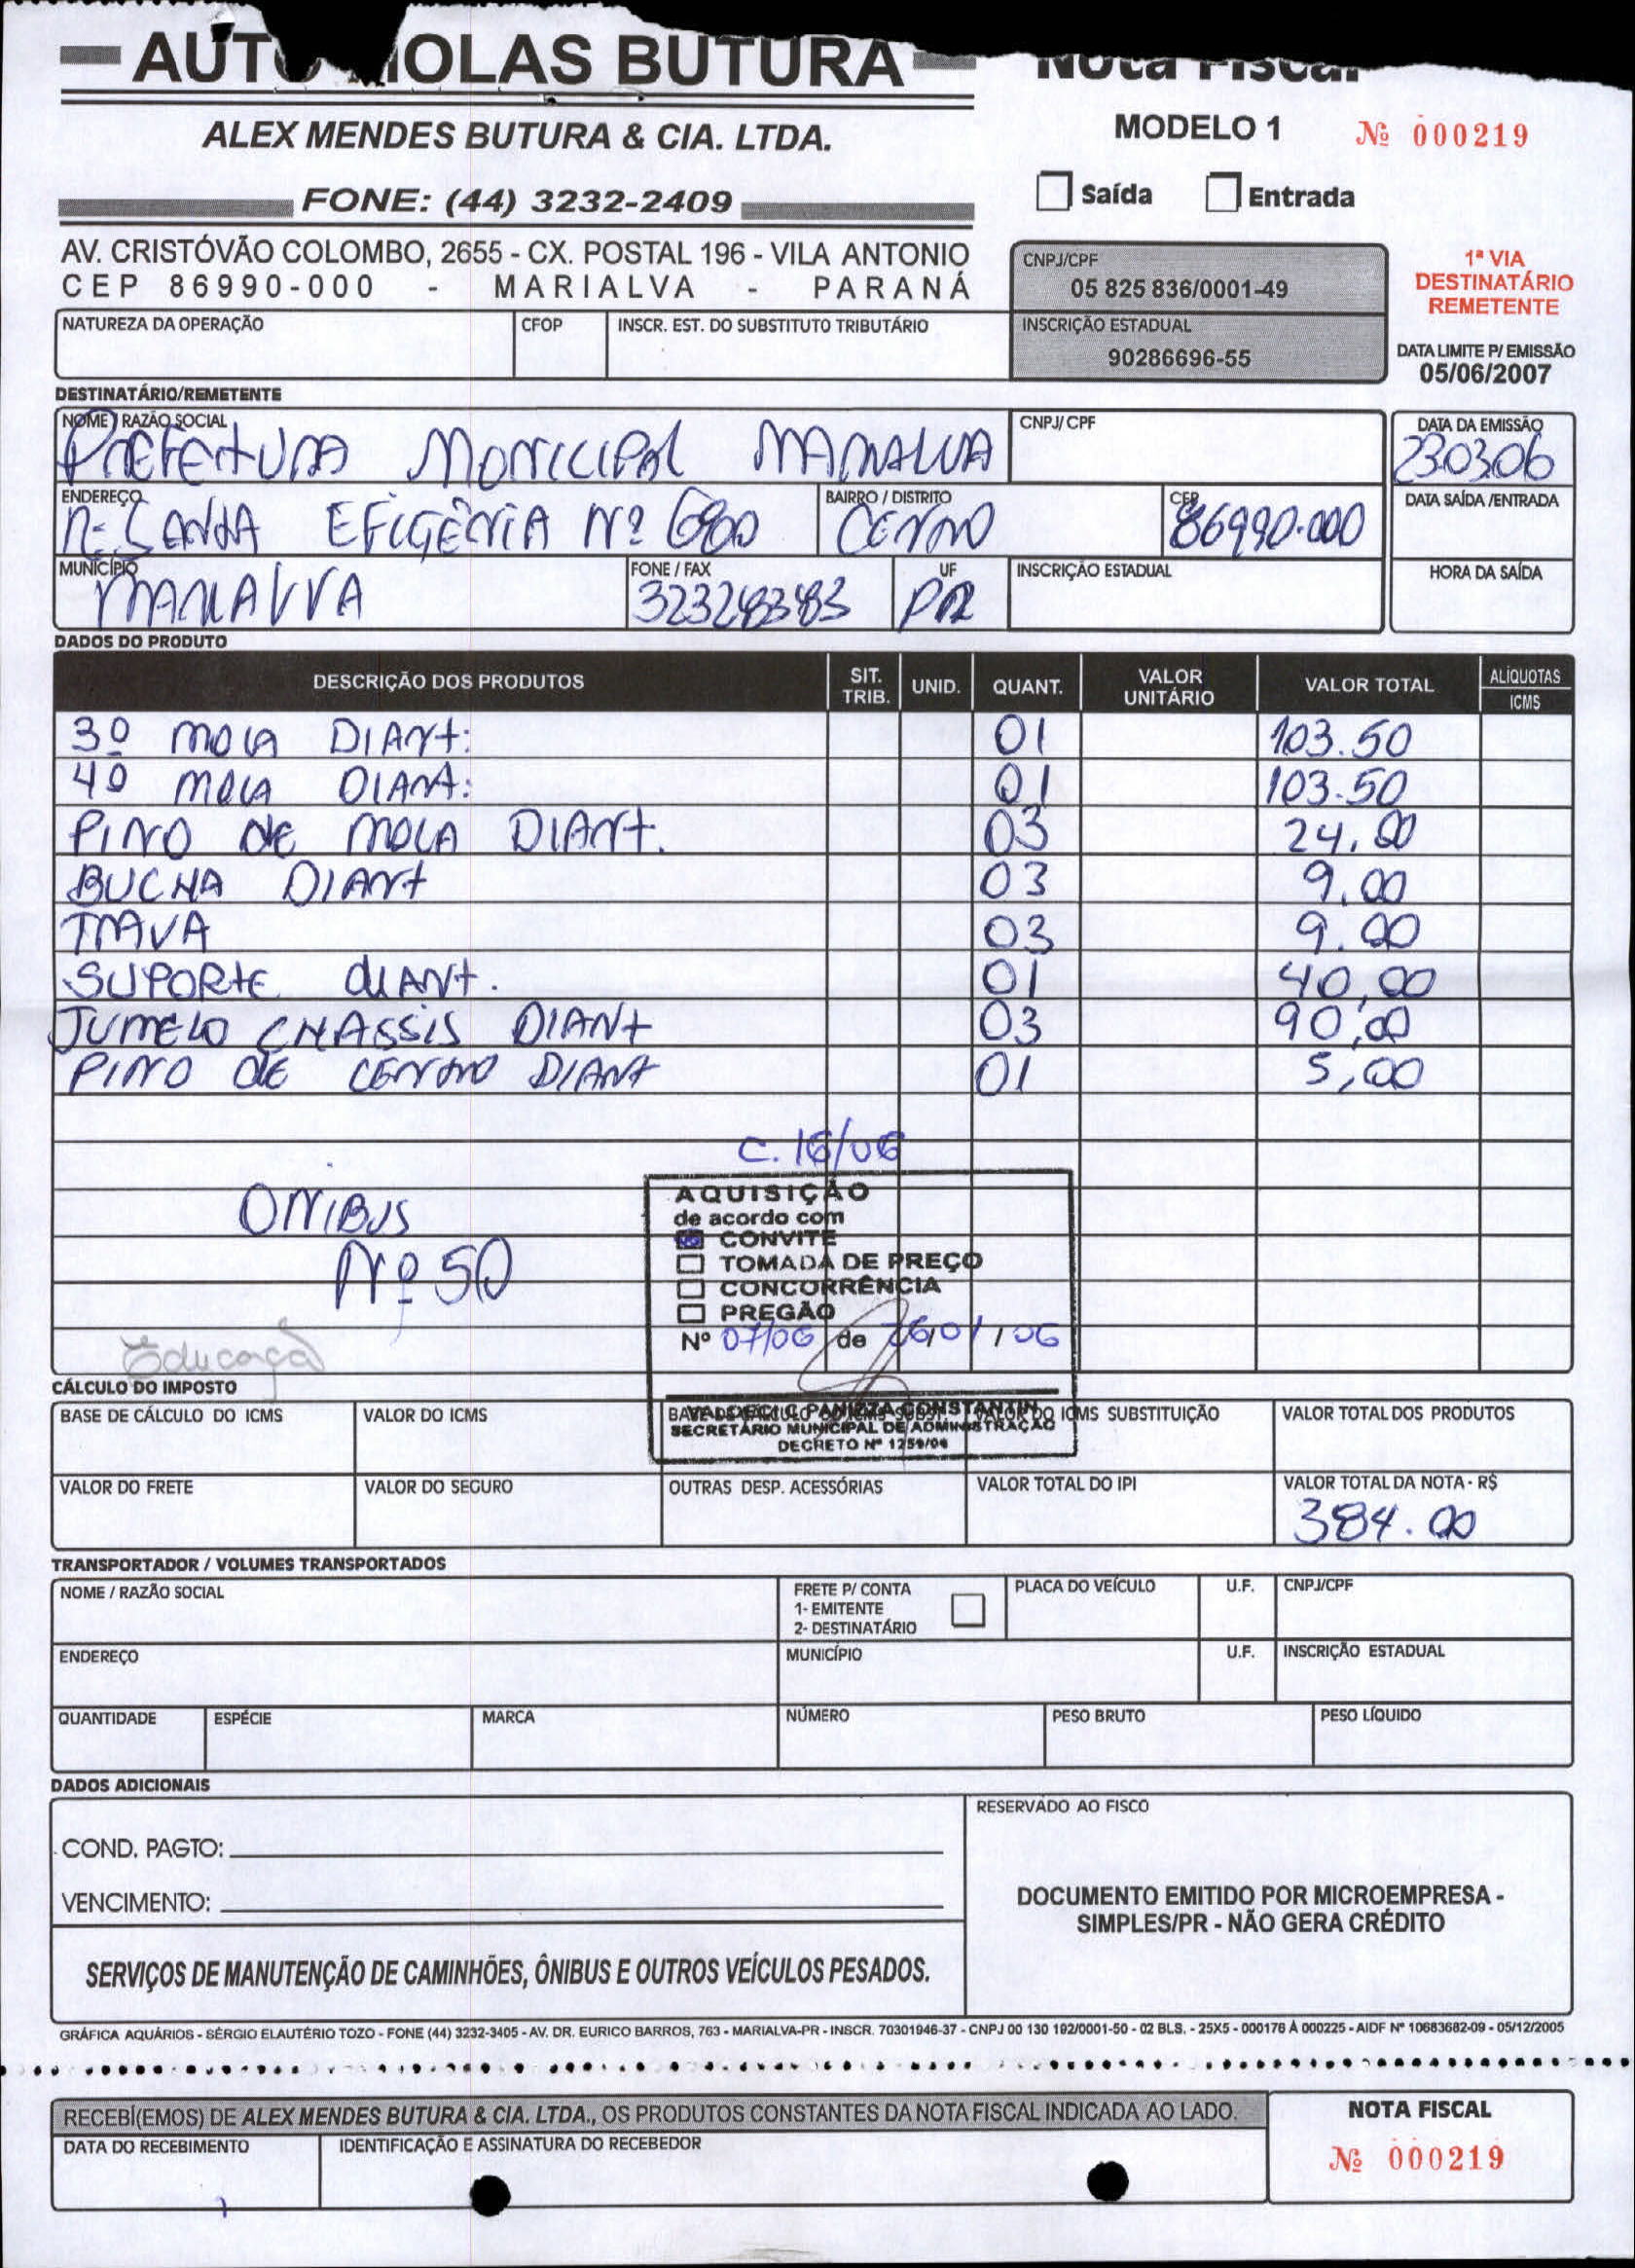 AUTO MOLAS BUTURA
Nota Fiscal
ALEX MENDES BUTURA & CIA. LTDA.
MODELO 1 Nº 000219
FONE: (44) 3232-2409
Saída Entrada
AV. CRISTÓVÃO COLOMBO, 2655 - CX. POSTAL 196 - VILA ANTONIO
CEP 86990-000 - MARIALVA - PARANÁ
CNPJ/CPF
05 825 836/0001-49
1ª VIA
DESTINATÁRIO
REMETENTE
NATUREZA DA OPERAÇÃO CFOP INSCR. EST. DO SUBSTITUTO TRIBUTÁRIO
INSCRIÇÃO ESTADUAL
90286696-55
DATA LIMITE P/ EMISSÃO
05/06/2007
DESTINATÁRIO/REMETENTE
NOME / RAZÃO SOCIAL CNPJ/CPF DATA DA EMISSÃO
PREFEITURA MONICIPAL MARIALVA 230306
ENDEREÇO BAIRRO / DISTRITO CEP DATA SAÍDA /ENTRADA
R- SANTA EFIGÊNIA Nº 680 CENTRO 86990.000
MUNICÍPIO FONE / FAX UF INSCRIÇÃO ESTADUAL HORA DA SAÍDA
MARIALVA 32328383 PR
DADOS DO PRODUTO
DESCRIÇÃO DOS PRODUTOS SIT. TRIB. UNID. QUANT. VALOR UNITÁRIO VALOR TOTAL ALÍQUOTAS ICMS
3º MOLA DIANT: 01 103.50
4º MOLA DIANT: 01 103.50
PINO DE MOLA DIANT. 03 24,00
BUCHA DIANT 03 9,00
TRAVA 03 9.00
SUPORTE DIANT. 01 40,00
JUMELO CHASSIS DIANT 03 90,00
PINO DE CENTRO DIANT 01 5,00
C. 16/06
ONIBUS
Nº 50
AQUISIÇÃO
de acordo com
CONVITE
TOMADA DE PREÇO
CONCORRÊNCIA
PREGÃO
Nº 07/06 de 26/01/06
Educação
VALDECI C. PANIZZA CONSTANTIN
SECRETÁRIO MUNICIPAL DE ADMINISTRAÇÃO
DECRETO Nº 1259/04
CÁLCULO DO IMPOSTO
BASE DE CÁLCULO DO ICMS VALOR DO ICMS BASE DE CÁLCULO DO ICMS SUBST. VALOR DO ICMS SUBSTITUIÇÃO VALOR TOTAL DOS PRODUTOS
VALOR DO FRETE VALOR DO SEGURO OUTRAS DESP. ACESSÓRIAS VALOR TOTAL DO IPI VALOR TOTAL DA NOTA - R$
384.00
TRANSPORTADOR / VOLUMES TRANSPORTADOS
NOME / RAZÃO SOCIAL FRETE P/ CONTA PLACA DO VEÍCULO U.F. CNPJ/CPF
1- EMITENTE
2- DESTINATÁRIO
ENDEREÇO MUNICÍPIO U.F. INSCRIÇÃO ESTADUAL
QUANTIDADE ESPÉCIE MARCA NÚMERO PESO BRUTO PESO LÍQUIDO
DADOS ADICIONAIS
RESERVADO AO FISCO
COND. PAGTO:
VENCIMENTO:
DOCUMENTO EMITIDO POR MICROEMPRESA -
SIMPLES/PR - NÃO GERA CRÉDITO
SERVIÇOS DE MANUTENÇÃO DE CAMINHÕES, ÔNIBUS E OUTROS VEÍCULOS PESADOS.
GRÁFICA AQUÁRIOS - SÉRGIO ELAUTÉRIO TOZO - FONE (44) 3232-3405 - AV. DR. EURICO BARROS, 763 - MARIALVA-PR - INSCR. 70301946-37 - CNPJ 00 130 192/0001-50 - 02 BLS. - 25X5 - 000176 À 000225 - AIDF Nº 10683682-09 - 05/12/2005
RECEBI(EMOS) DE ALEX MENDES BUTURA & CIA. LTDA., OS PRODUTOS CONSTANTES DA NOTA FISCAL INDICADA AO LADO.
NOTA FISCAL
DATA DO RECEBIMENTO IDENTIFICAÇÃO E ASSINATURA DO RECEBEDOR
Nº 000219